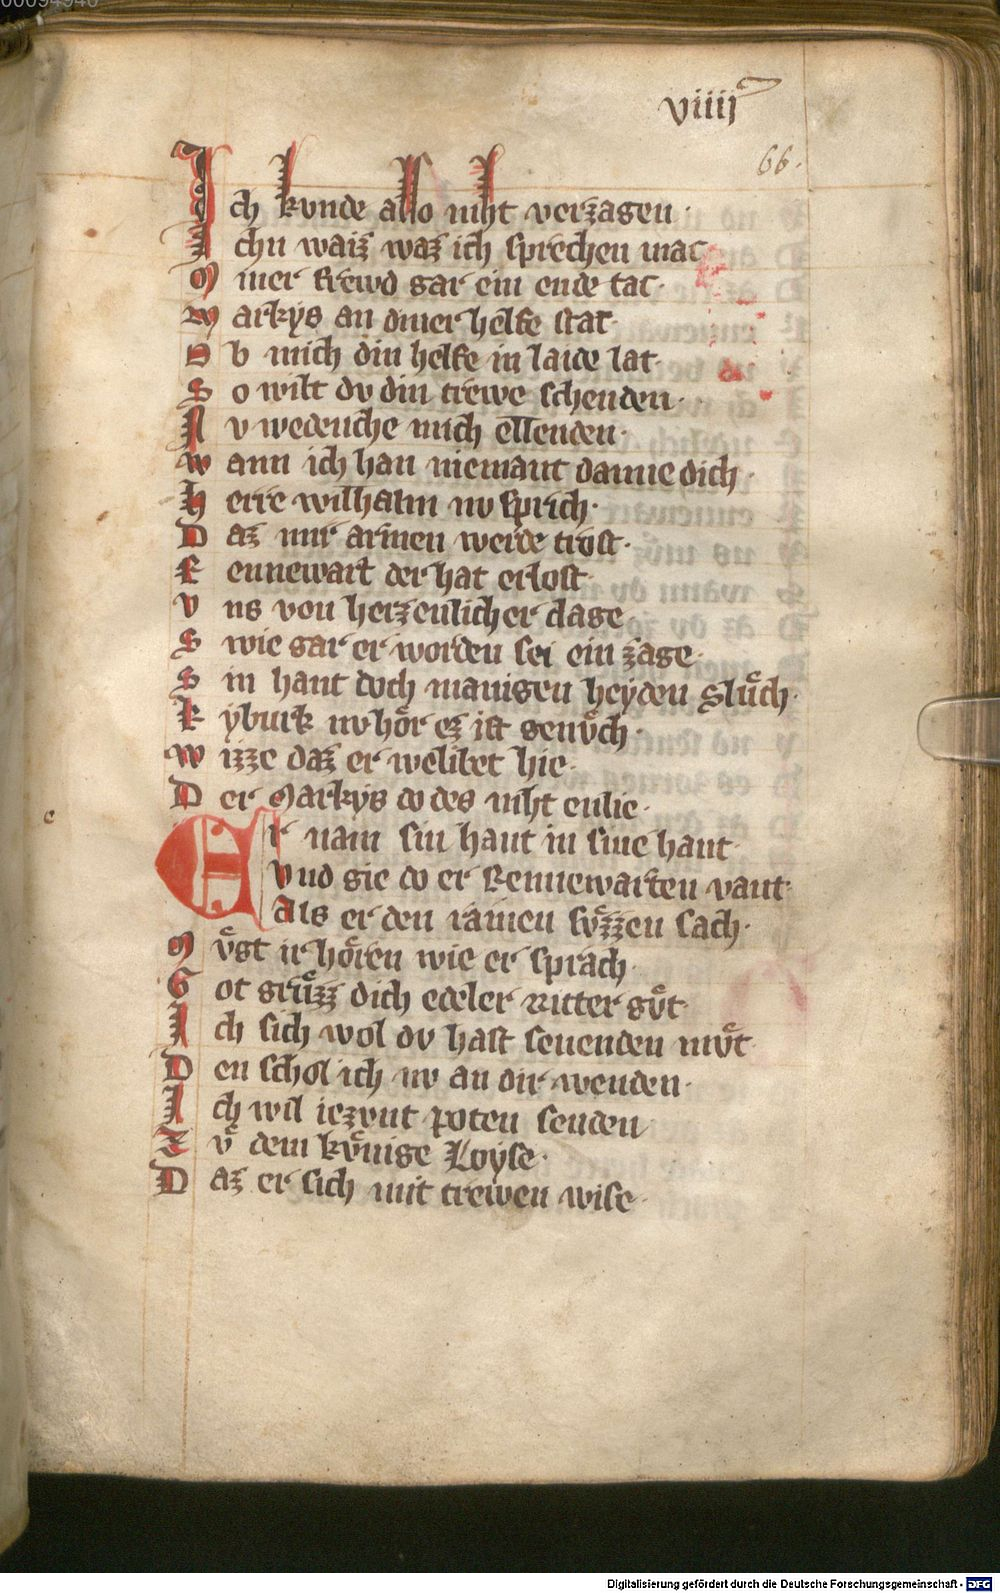 00094940
viiij
66.
Ich kvnde also niht verzagen·
Ichn waiz waz ich sprechen mac
Miner frewd gar ein ende tac·
Markys an diner helfe stat·
Ob mich din helfe in laide lat·
So wilt dv din trewe schenden·
Nv wedenche mich ellenden·
Wann ich han niemant danne dich·
Herre wilhalm nv sprich·
Daz mir armen werde trost·
Rennewart der hat erlost·
Vns von herzenlicher clage
Swie gar er worden sei ein zage·
Sin hant doch manigen heyden slůch·
Kyburk nv hör ez ist genv̊ch·
Wizze daz er welibet hie·
Der Markys do des niht enlie·
e
Er nam sin hant in sine hant·
Vnd gie do er Rennewarten vant·
Als er den ramen sv̊zzen sach·
Mv̊gt ir hören wie er sprach·
Got grůzz dich edeler Ritter gv̊t·
Ich sich wol dv hast senenden mv̊t·
Den schol ich nv an dir wenden·
Ich wil iezvnt poten senden
Zv̊ dem kv̊nige Loyse·
Daz er sich mit trewen wise·
Digitalisierung gefördert durch die Deutsche Forschungsgemeinschaft - DFG